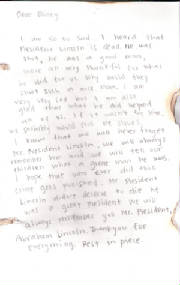 Dear Diary
I am so so sad. I heard that
President Lincoln is dead. He was
shot, he was a good man,
were all very thankful for what
he did for us. Why would they
shoot such a nice man. I am
very very sad but I am also
glad that he did helped
us. If it wasn't for him,
we
I know that we will never forget
Mr. President Lincoln, we will always
remember him and we will tell our
children what a great man he was.
I hope that who ever did this
crime gets punished. Mr. President
Lincoln didn't deserve to die he
was a great President. We will
always remember you Mr. President,
Abraham Lincoln. Thank you for
everything. Rest in piece